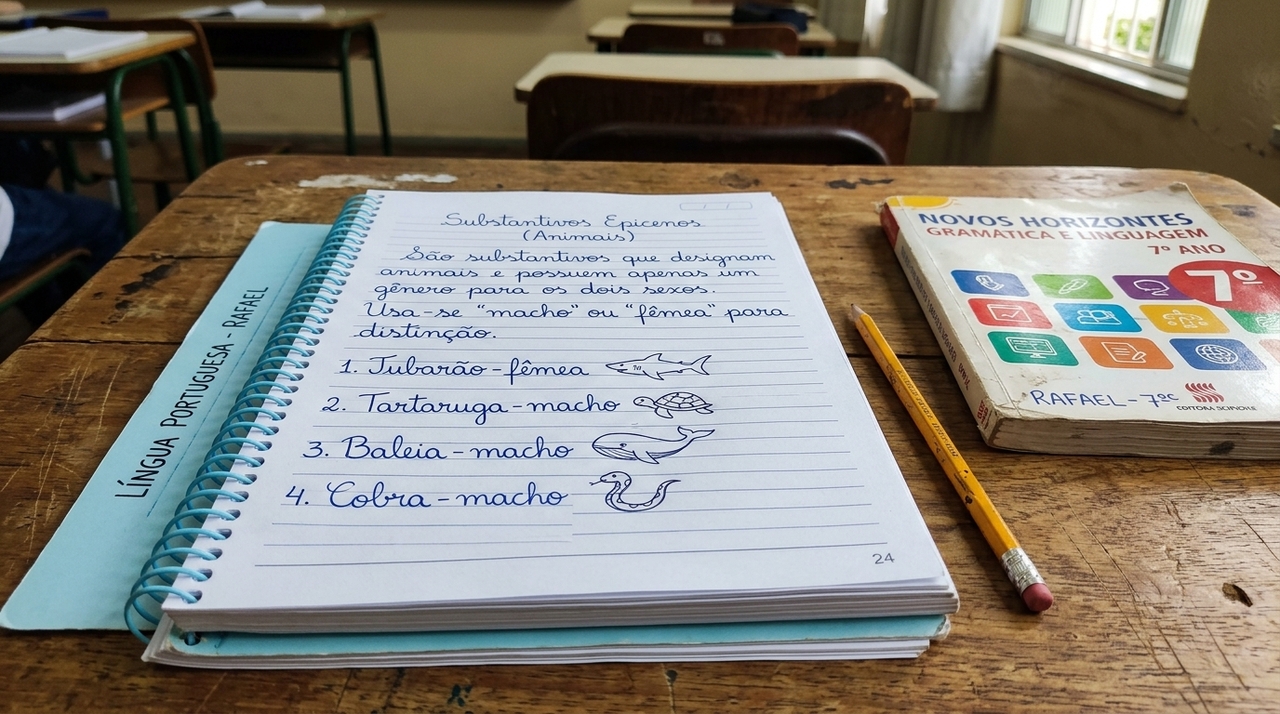 Substantivos Epicenos
(Animais)
São substantivos que designam
animais e possuem apenas um
gênero para os dois sexos.
Usa-se "macho" ou "fêmea" para
distinção.
1. Tubarão-fêmea
2. Tartaruga-macho
3. Baleia-macho
4. Cobra-macho
24
LÍNGUA PORTUGUESA - RAFAEL
NOVOS HORIZONTES
GRAMÁTICA E LINGUAGEM
7º ANO
7º
RAFAEL - 7ºC
EDITORA